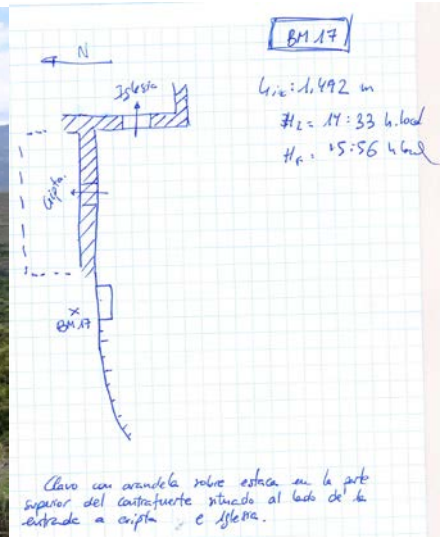 BM 17
N
Iglesia
hi: 1,492 m
H
h. local
H
15:56 h local
Cripta
BM 17
Clavo con arandela sobre estaca en la parte
superior del contrafuerte situado al lado de la
entrada a cripta e Iglesia.